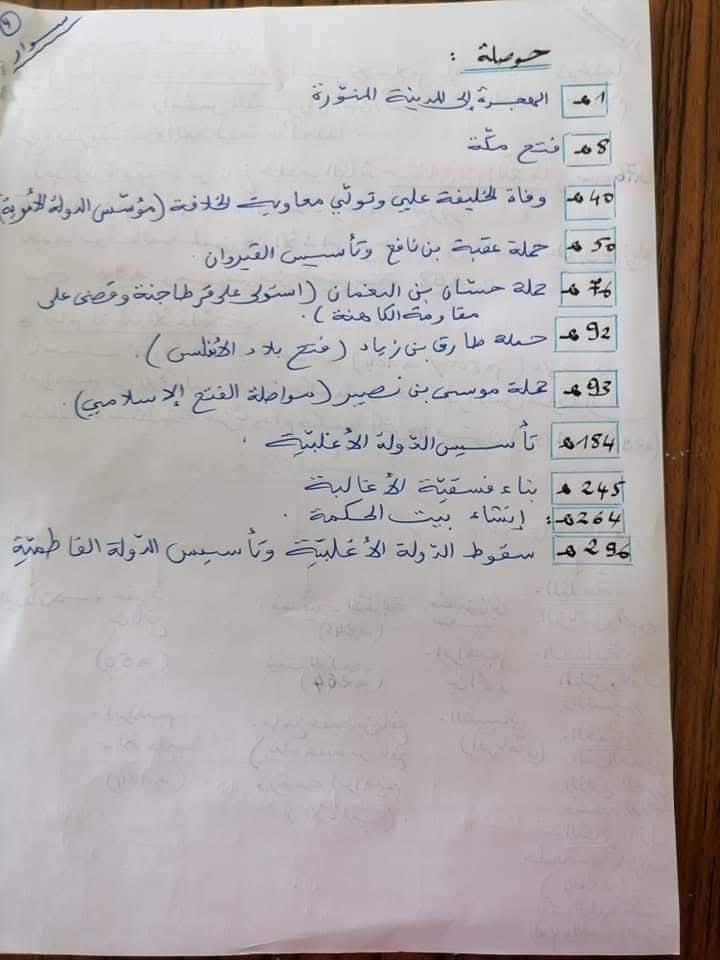 4
سوار
حوصلة :
1هـ الهجرة إلى المدينة المنوّرة
8هـ فتح مكّة
40هـ وفاة الخليفة علي وتولّي معاوية الخلافة (مؤسّس الدولة الأموية)
50هـ حملة عقبة بن نافع وتأسيس القيروان
76هـ حملة حسّان بن النعمان (استولى على قرطاجنة وقضى على
مقاومة الكاهنة).
92هـ حملة طارق بن زياد (فتح بلاد الأندلس).
93هـ حملة موسى بن نصير (مواصلة الفتح الإسلامي).
184هـ تأسيس الدّولة الأغلبيّة.
245هـ بناء فسقيّة الأغالبة
264هـ: إنشاء بيت الحكمة.
296هـ سقوط الدّولة الأغلبيّة وتأسيس الدّولة الفاطميّة